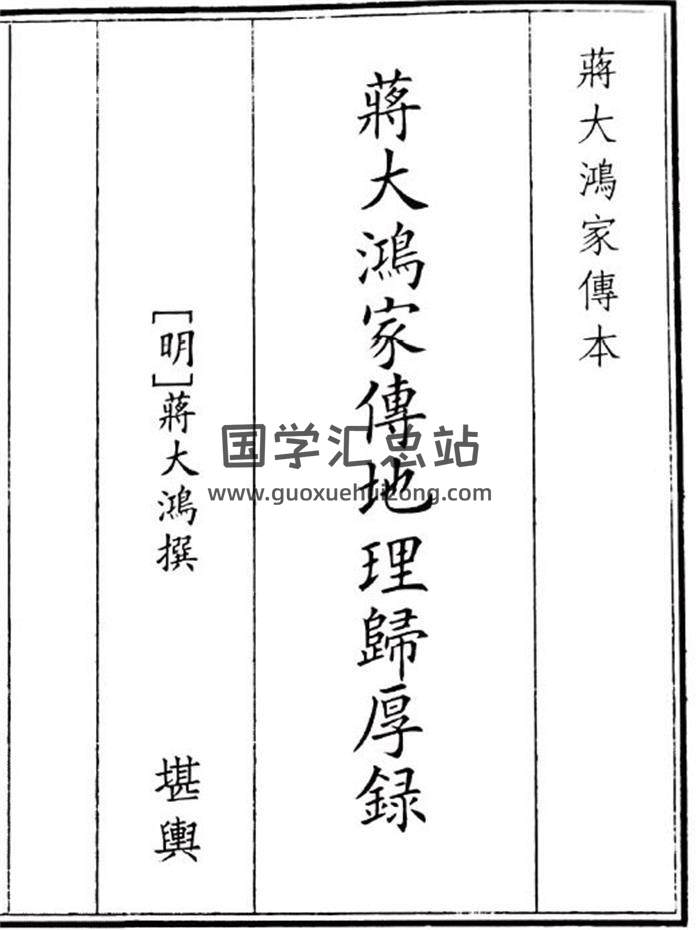 蔣大鴻家傳本
蔣大鴻家傳地理歸厚録
[明]蔣大鴻撰
堪輿
国学汇总站
www.guoxuehuizong.com